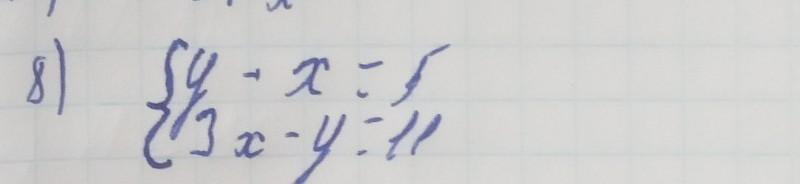 8) { y - x = 5
3x - y = 11